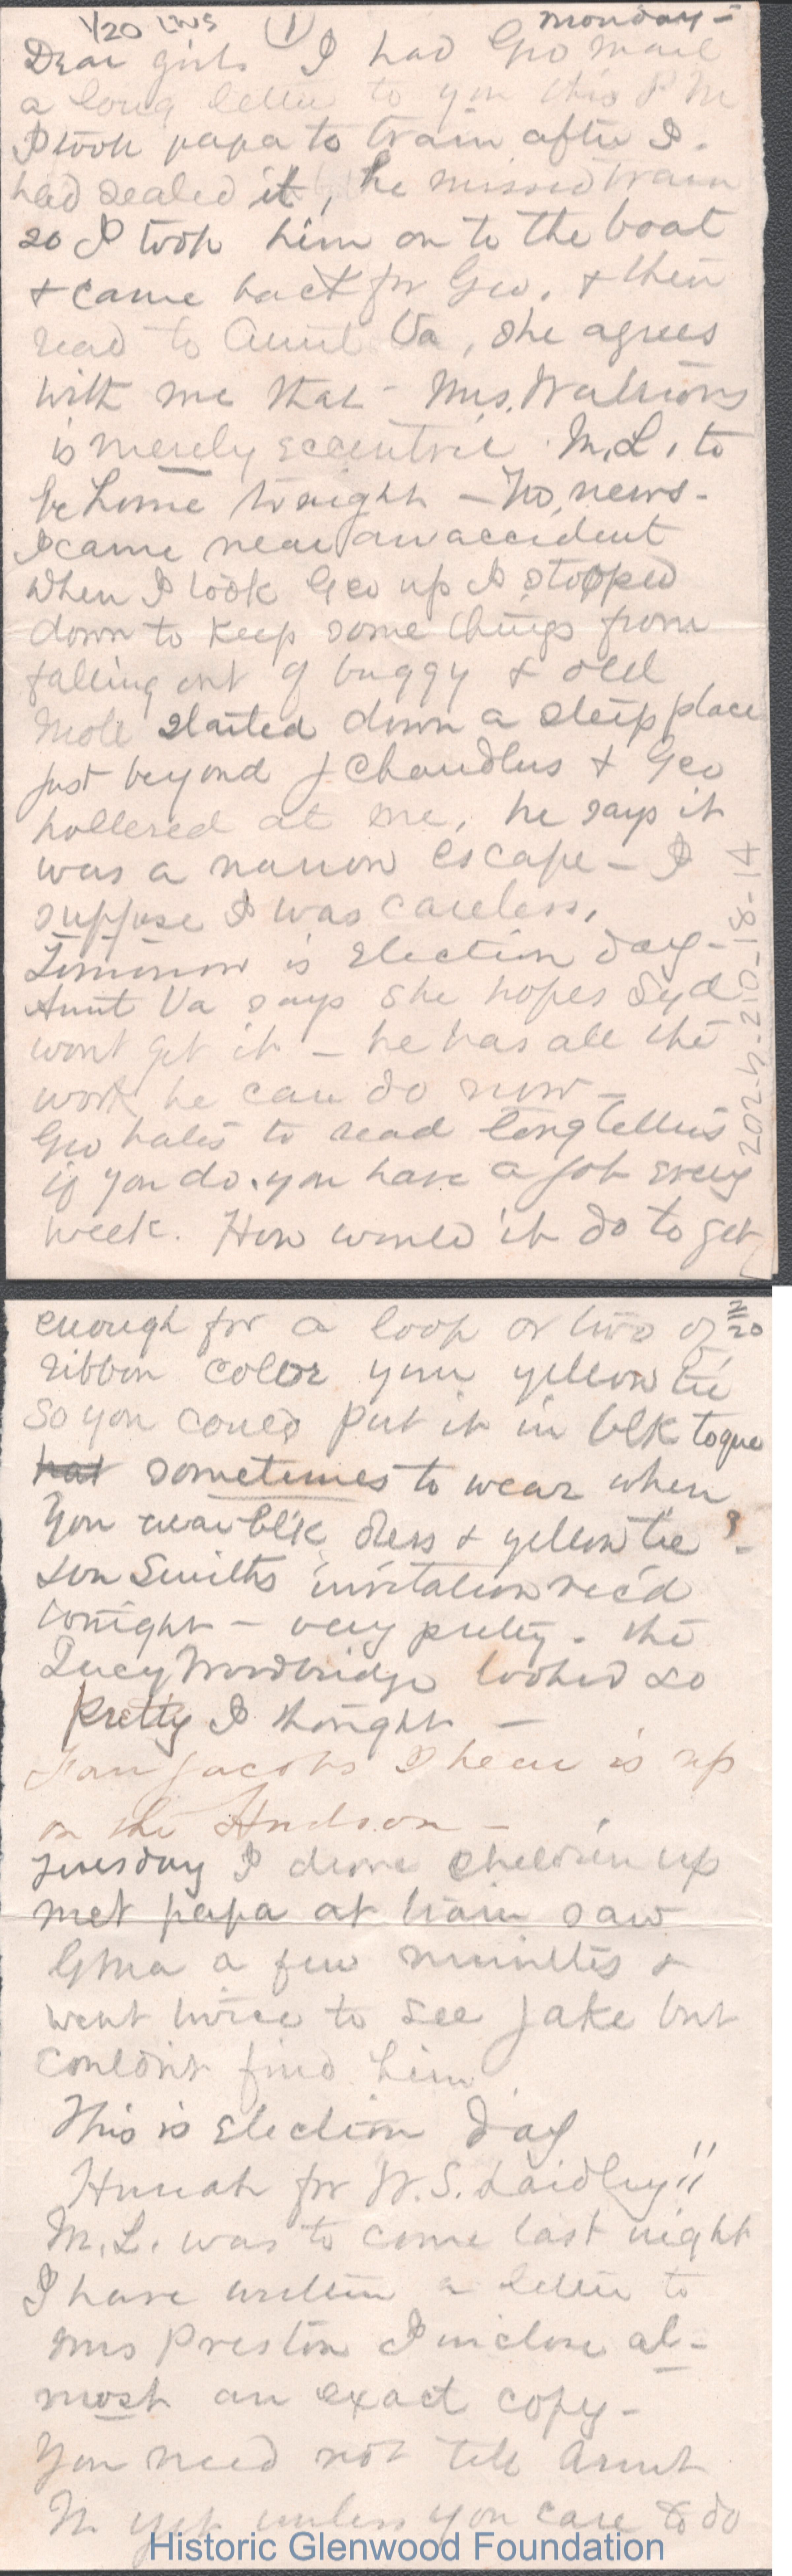 1/20 LWS (1) Monday -
Dear girls I had Geo mail
a long letter to you this P M
I took papa to train after I
had sealed it, he missed train
so I took him on to the boat
& came back for Geo. & then
read to Aunt Va, she agrees
with me that - Mrs.
is merely eccentric. M. L. to
be home tonight - No news -
I came near an accident
when I took Geo up I stopped
down to keep some things from
falling out of buggy & old
Moll started down a steep place
just beyond J Chandlers & Geo
hollered at me, he says it
was a narrow escape - I
suppose I was careless,
Tomorrow is Election day -
Aunt Va says she hopes Syd
wont get it - he has all the
work he can do now -
Geo hates to read long letters
if you do. you have a job every
week. How would it do to get
2024.210.18.14
enough for a loop or two of 2/20
ribbon color your yellow tie
So you could put it in blk toque
hat sometimes to wear when
you wear blk dress & yellow tie? -
Lon Smiths invitation rec'd
tonight - very pretty. the
Lucy Woodbridge looked so
pretty I thought -
Fan Jacobs I hear is up
on the Hudson -
Tuesday I drove children up
met papa at train saw
Gma a few minutes &
went twice to see Jake but
couldn't find him
This is Election day
Hurrah for W. S. Laidley!!
M. L. was to come last night
I have written a letter to
Mrs Preston I inclose al-
most an exact copy -
You need not tell Aunt
N. yet unless you care to do
Historic Glenwood Foundation